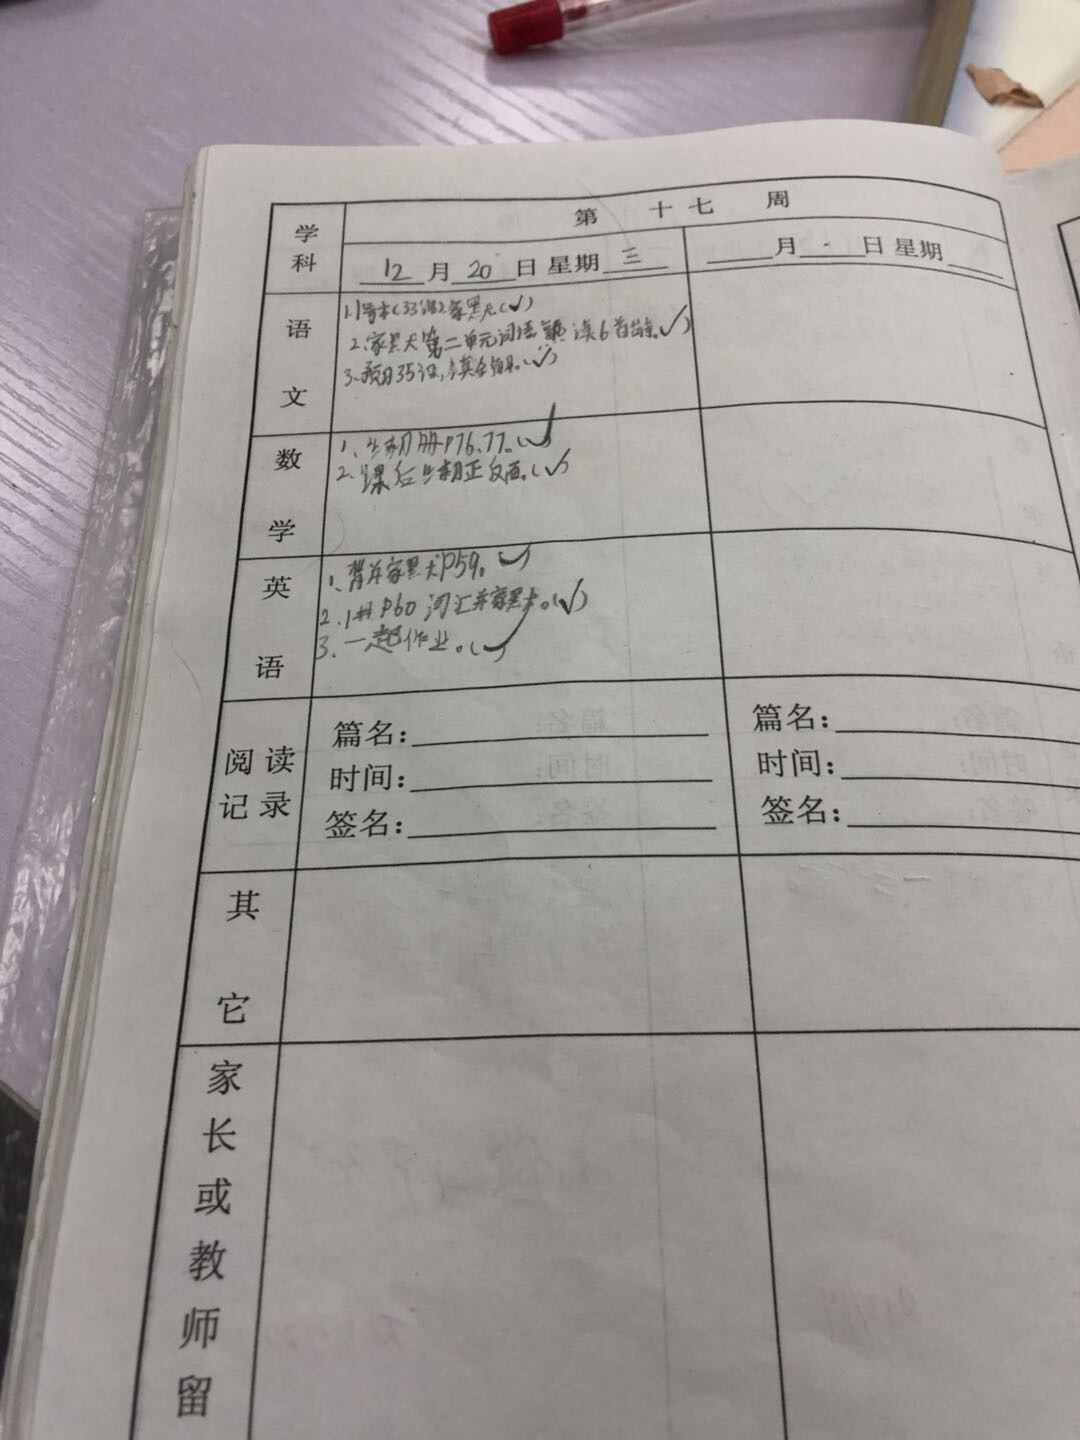 学科
第 十七 周
12月20日 星期三
月 日 星期
语文
1.1号本(33课)家黑
2.家黑 第二单元词语 读6首
3.预习35课,读全
数学
1、册P76、77。
2.课后 正反面。
英语
1、背并家黑 P59。
2.1 P60 词汇并家黑。
3.一起作业。
阅读记录
篇名:
时间:
签名:
篇名:
时间:
签名:
其它
家长或教师留